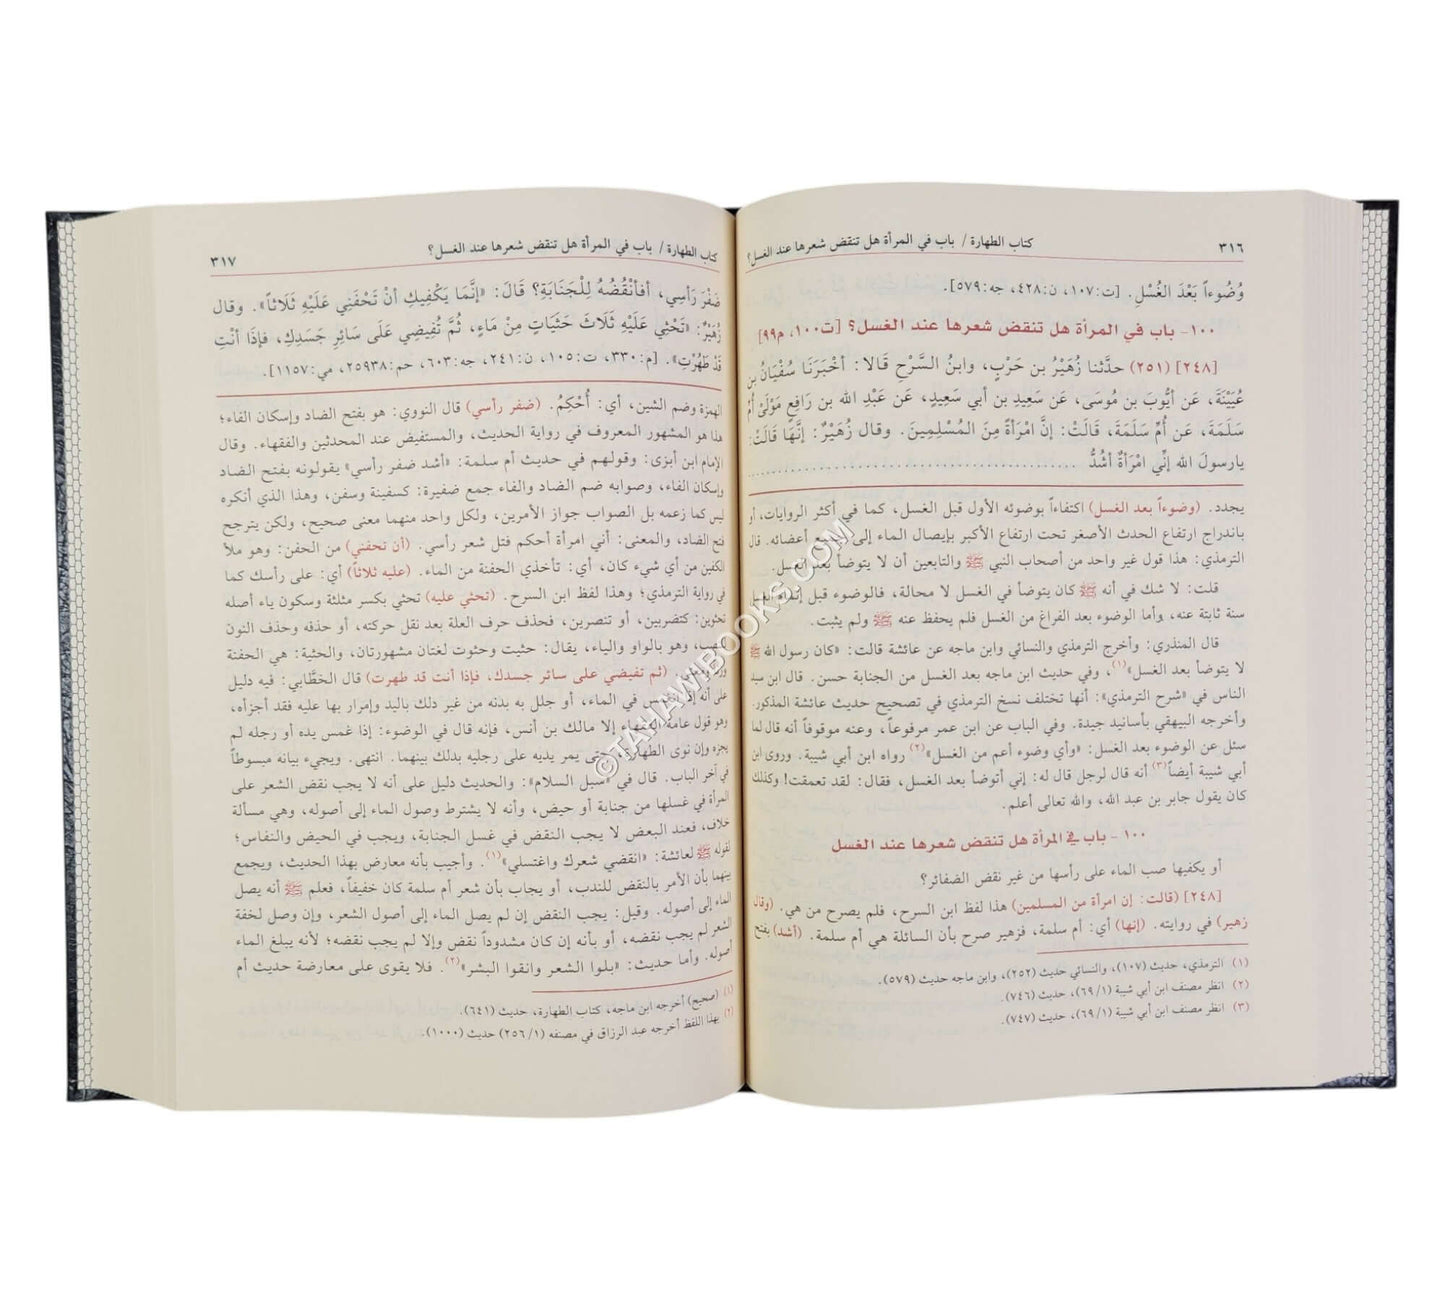 ٣١٦
كتاب الطهارة / باب في المرأة هل تنقض شعرها عند الغسل؟
وُضُوءاً بَعْدَ الغُسْلِ. [ت:١٠٧، ن:٤٢٨، جه:٥٧٩].
١٠٠- باب في المرأة هل تنقض شعرها عند الغسل؟ [ت١٠٠، م٩٩]
[٢٤٨] (٢٥١) حدَّثنا زُهَيْرُ بن حَرْبٍ، وابنُ السَّرْحِ قَالا: أخْبَرَنَا سُفْيَانُ بن
عُيَيْنَةَ، عَن أيُّوبَ بن مُوسَى، عَن سَعِيدِ بن أبي سَعِيدٍ، عَن عَبْدِ الله بن رَافِعٍ مَوْلَى أُمِّ
سَلَمَةَ، عَن أُمِّ سَلَمَةَ، قَالَتْ: إنَّ امْرَأةً مِنَ المُسْلِمِينَ. وقال زُهَيْرٌ: إنَّهَا قَالَتْ:
يارسولَ الله إنِّي امْرَأةٌ أشُدُّ ............................................
يجدد. (وضوءاً بعد الغسل) اكتفاءاً بوضوئه الأول قبل الغسل، كما في أكثر الروايات، أو
باندراج ارتفاع الحدث الأصغر تحت ارتفاع الأكبر بإيصال الماء إلى أعضائه. قال
الترمذي: هذا قول غير واحد من أصحاب النبي ﷺ والتابعين أن لا يتوضأ بعد الغسل.
قلت: لا شك في أنه ﷺ كان يتوضأ في الغسل لا محالة، فالوضوء قبل الغسل
سنة ثابتة عنه، وأما الوضوء بعد الفراغ من الغسل فلم يحفظ عنه ﷺ ولم يثبت.
قال المنذري: وأخرج الترمذي والنسائي وابن ماجه عن عائشة قالت: «كان رسول الله ﷺ
لا يتوضأ بعد الغسل»(١)، وفي حديث ابن ماجه بعد الغسل من الجنابة حسن. قال ابن سيد
الناس في «شرح الترمذي»: أنها تختلف نسخ الترمذي في تصحيح حديث عائشة المذكور.
وأخرجه البيهقي بأسانيد جيدة. وفي الباب عن ابن عمر مرفوعاً، وعنه موقوفاً أنه قال لما
سئل عن الوضوء بعد الغسل: «وأي وضوء أعم من الغسل»(٢) رواه ابن أبي شيبة. وروى ابن
أبي شيبة أيضاً(٣) أنه قال لرجل قال له: إني أتوضأ بعد الغسل، فقال: لقد تعمقت! وكذلك
كان يقول جابر بن عبد الله، والله تعالى أعلم.
١٠٠ - باب في المرأة هل تنقض شعرها عند الغسل
أو يكفيها صب الماء على رأسها من غير نقض الضفائر؟
[٢٤٨] (قالت: إن امرأة من المسلمين) هذا لفظ ابن السرح، فلم يصرح من هي. (وقال
زهير) في روايته. (إنها) أي: أم سلمة، فزهير صرح بأن السائلة هي أم سلمة. (أشد) بفتح
(١) الترمذي، حديث (١٠٧)، والنسائي حديث (٢٥٢)، وابن ماجه حديث (٥٧٩).
(٢) انظر مصنف ابن أبي شيبة (١/ ٦٩)، حديث (٧٤٦).
(٣) انظر مصنف ابن أبي شيبة (١/ ٦٩)، حديث (٧٤٧).
كتاب الطهارة / باب في المرأة هل تنقض شعرها عند الغسل؟
٣١٧
ضَفْرَ رَأسِي، أفأنْقُضُهُ لِلْجَنَابَةِ؟ قَالَ: «إنَّمَا يَكْفِيكِ أنْ تَحْفَنِي عَلَيْهِ ثَلَاثاً». وقال
زُهَيْرٌ: «تَحْثِي عَلَيْهِ ثَلَاثَ حَثَيَاتٍ مِنْ مَاءٍ، ثُمَّ تُفِيضِي عَلَى سَائِرِ جَسَدِكِ، فإذَا أنْتِ
قَدْ طَهُرْتِ». [م:٣٣٠، ت:١٠٥، ن:٢٤١، جه:٦٠٣، حم:٢٥٩٣٨، مي:١١٥٧].
الهمزة وضم الشين، أي: أُحْكِمُ. (ضفر رأسي) قال النووي: هو بفتح الضاد وإسكان الفاء؛
هذا هو المشهور المعروف في رواية الحديث، والمستفيض عند المحدثين والفقهاء. وقال
الإمام ابن أبزى: وقولهم في حديث أم سلمة: «أشد ضفر رأسي» يقولونه بفتح الضاد
وإسكان الفاء، وصوابه ضم الضاد والفاء جمع ضفيرة: كسفينة وسفن، وهذا الذي أنكره
ليس كما زعمه بل الصواب جواز الأمرين، ولكل واحد منهما معنى صحيح، ولكن يترجح
فتح الضاد، والمعنى: أني امرأة أحكم فتل شعر رأسي. (أن تحفني) من الحفن: وهو ملأ
الكفين من أي شيء كان، أي: تأخذي الحفنة من الماء. (عليه ثلاثاً) أي: على رأسك كما
في رواية الترمذي؛ وهذا لفظ ابن السرح. (تحثي عليه) تحثي بكسر مثلثة وسكون ياء أصله
تحثوين: كتضربين، أو تنصرين، فحذف حرف العلة بعد نقل حركته، أو حذفه وحذف النون
وهو بالواو والياء، يقال: حثيت وحثوت لغتان مشهورتان، والحثية: هي الحفنة
(ثم تفيضي على سائر جسدك، فإذا أنت قد طهرت) قال الخطَّابي: فيه دليل
على أنه إذا في الماء، أو جلل به بدنه من غير دلك باليد وإمرار بها عليه فقد أجزأه،
وهو قول عامة الفقهاء إلا مالك بن أنس، فإنه قال في الوضوء: إذا غمس يده أو رجله لم
يجزه وإن نوى الطهارة، حتى يمر يديه على رجليه بدلك بينهما. انتهى. ويجيء بيانه مبسوطاً
في آخر الباب. قال في «سبل السلام»: والحديث دليل على أنه لا يجب نقض الشعر على
المرأة في غسلها من جنابة أو حيض، وأنه لا يشترط وصول الماء إلى أصوله، وهي مسألة
خلاف، فعند البعض لا يجب النقض في غسل الجنابة، ويجب في الحيض والنفاس؛
لقوله ﷺ لعائشة: «انقضي شعرك واغتسلي»(١). وأجيب بأنه معارض بهذا الحديث، ويجمع
بينهما بأن الأمر بالنقض للندب، أو يجاب بأن شعر أم سلمة كان خفيفاً، فعلم ﷺ أنه يصل
الماء إلى أصوله. وقيل: يجب النقض إن لم يصل الماء إلى أصول الشعر، وإن وصل لخفة
الشعر لم يجب نقضه، أو بأنه إن كان مشدوداً نقض وإلا لم يجب نقضه؛ لأنه يبلغ الماء
أصوله. وأما حديث: «بلوا الشعر وانقوا البشر»(٢). فلا يقوى على معارضة حديث أم
(١) (صحيح) أخرجه ابن ماجة، كتاب الطهارة، حديث (٦٤١).
(٢) بهذا اللفظ أخرجه عبد الرزاق في مصنفه (١/ ٢٥٦) حديث (١٠٠٠).
©TAHAWIBOOKS.COM